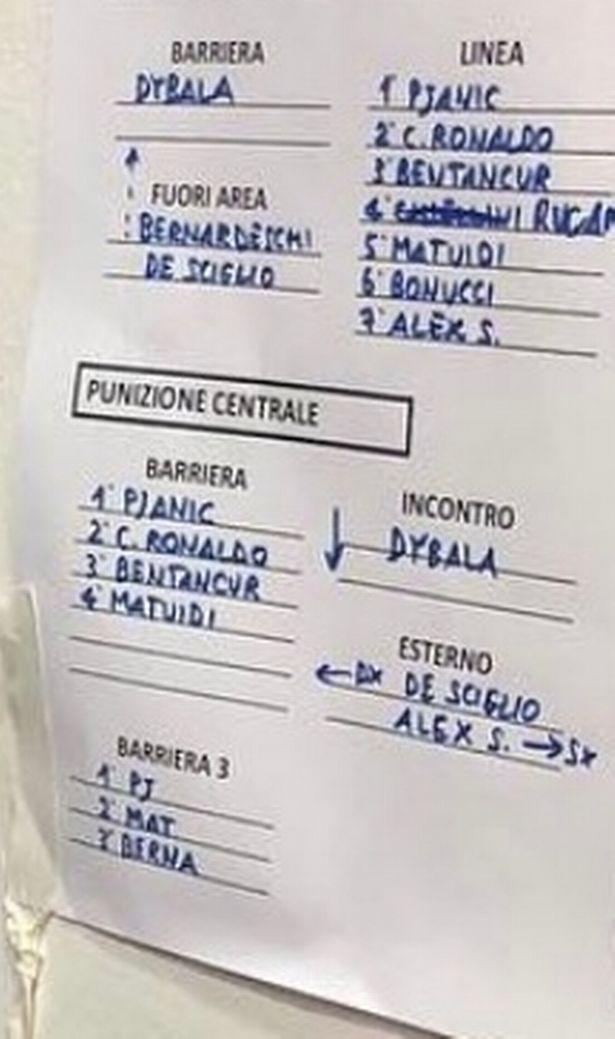 BARRIERA
DYBALA
FUORI AREA
BERNARDESCHI
DE SCIGLIO
LINEA
1° PJANIC
2° C. RONALDO
3° BENTANCUR
4° RUGAN
5° MATUIDI
6° BONUCCI
7° ALEX S.
PUNIZIONE CENTRALE
BARRIERA
1° PJANIC
2° C. RONALDO
3° BENTANCUR
4° MATUIDI
INCONTRO
DYBALA
ESTERNO
← DX DE SCIGLIO
ALEX S. → SX
BARRIERA 3
1° PJ
2° MAT
3° BERNA